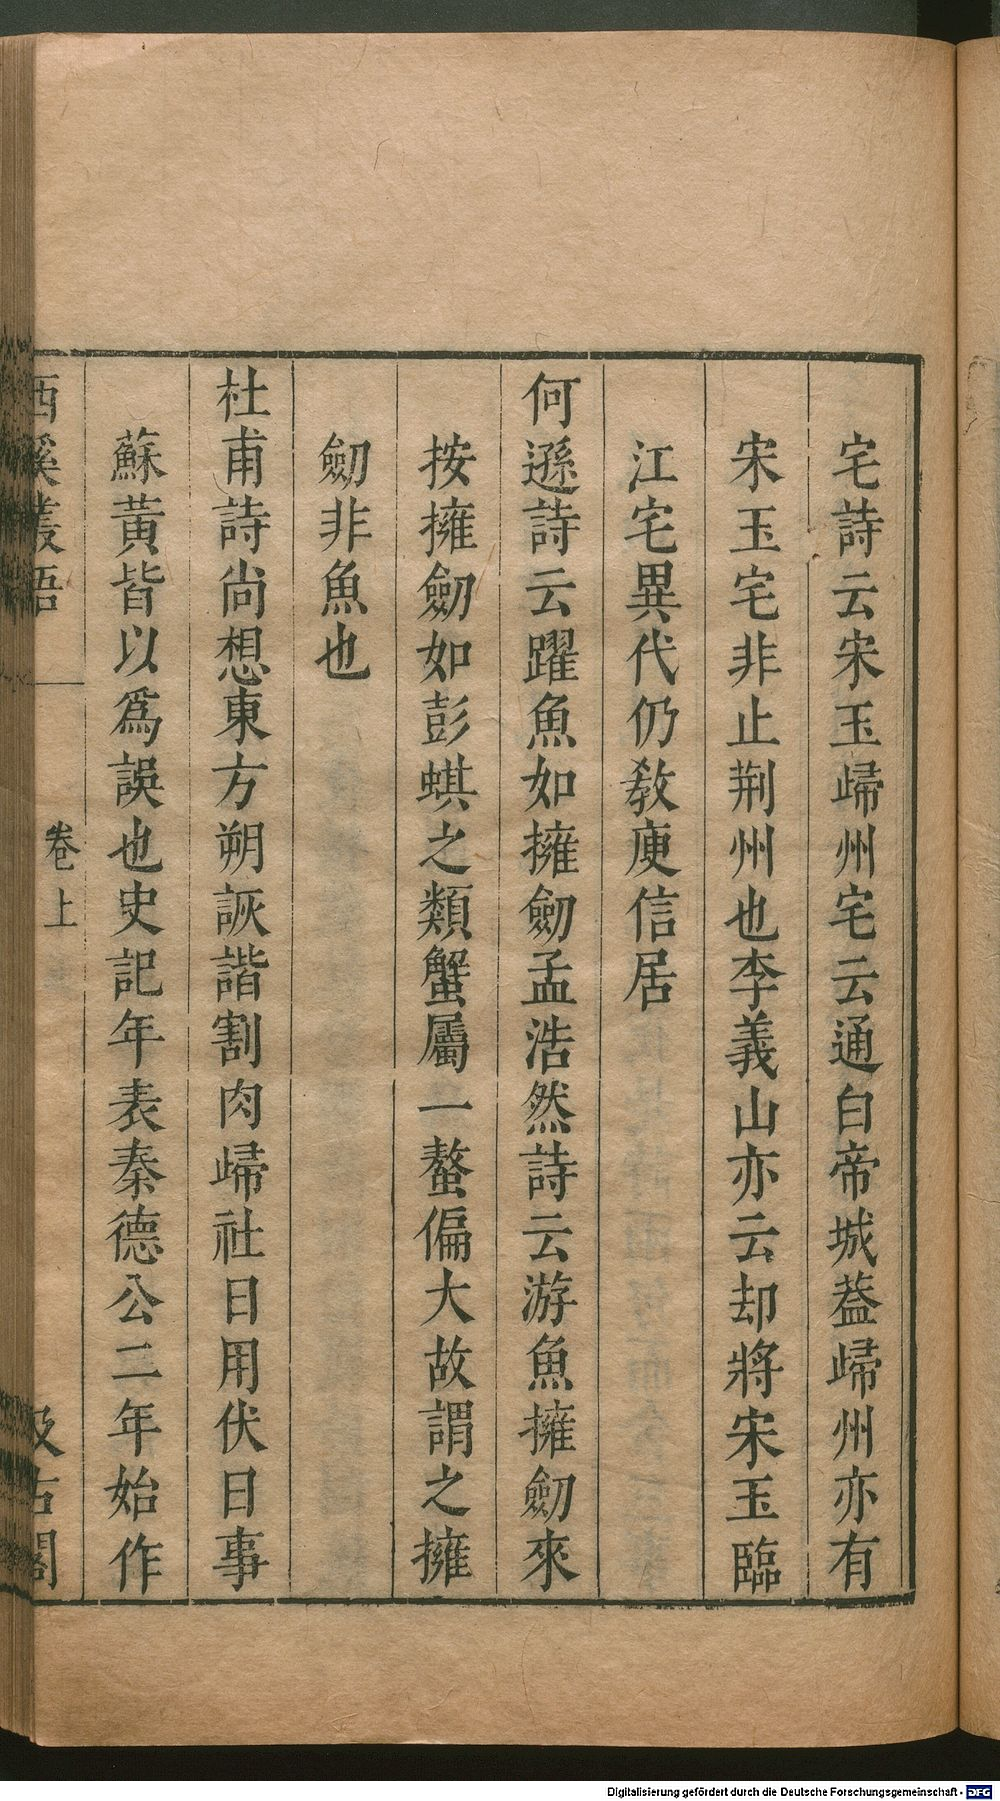 宅詩云宋玉歸州宅云通白帝城葢歸州亦有
宋玉宅非止荆州也李義山亦云却將宋玉臨
江宅異代仍敎庾信居
何遜詩云躍魚如擁劒孟浩然詩云游魚擁劒來
按擁劒如彭蜞之類蟹屬一螯偏大故謂之擁
劒非魚也
杜甫詩尚想東方朔詼諧割肉歸社日用伏日事
蘇黃皆以爲誤也史記年表秦德公二年始作
西溪叢語
卷上
汲古閣
Digitalisierung gefördert durch die Deutsche Forschungsgemeinschaft - DFG